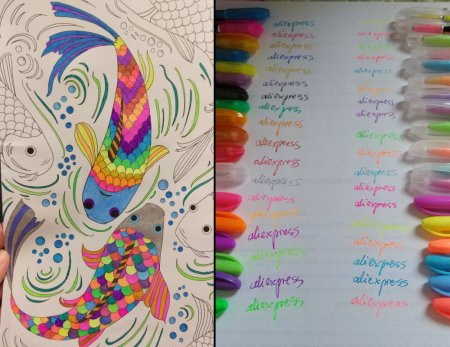 aliexpress aliexpress
aliexpress aliexpress
aliexpress aliexpress
aliexpress aliexpress
aliexpress aliexpress
aliexpress aliexpress
aliexpress aliexpress
aliexpress aliexpress
aliexpress aliexpress
aliexpress aliexpress
aliexpress aliexpress
aliexpress aliexpress
aliexpress aliexpress
aliexpress aliexpress
aliexpress aliexpress
aliexpress aliexpress
aliexpress aliexpress
aliexpress aliexpress